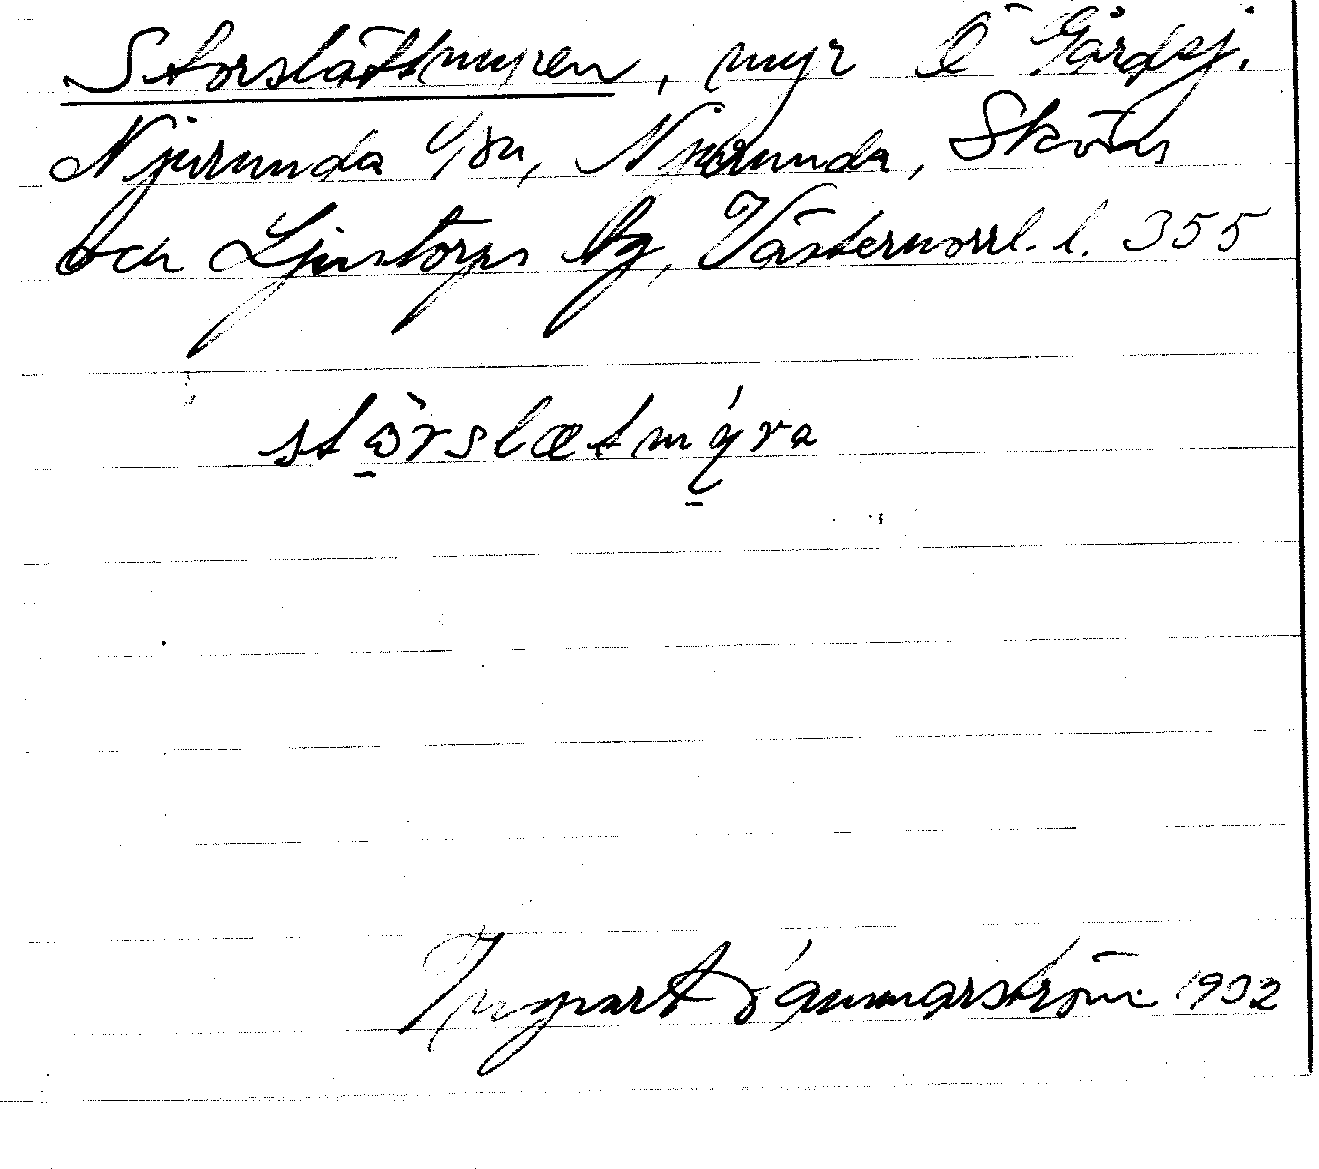 Storslåttmyren, myr Ö Gårdsj.
Njurunda sn, Njurunda, Sköns
och Ljustorps tg, Västernorrl. l. 355
stòrslætmýra
Ingvart 1932